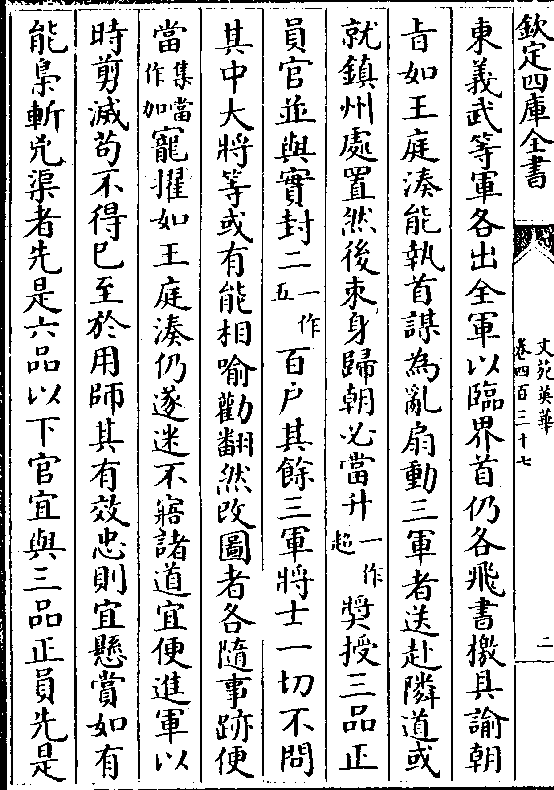 欽定四庫全書
文苑英華
卷四百三十七
二
東義武等軍各出全軍以臨界首仍各飛書檄具諭朝
㫖如王庭湊能執首謀為亂扇動三軍者送赴隣道或
就鎮州處置然後束身歸朝必當升一作超奬授三品正
員官並與實封二一作五百戸其餘三軍將士一切不問
其中大將等或有能相喻勸翻然改圖者各隨事跡便
當集作當如寵擢如王庭湊仍遂迷不寤諸道宜便進軍以
時剪滅苟不得已至於用師其有效忠則宜懸賞如有
能梟斬兇渠者先是六品以下官宜與三品正員先是